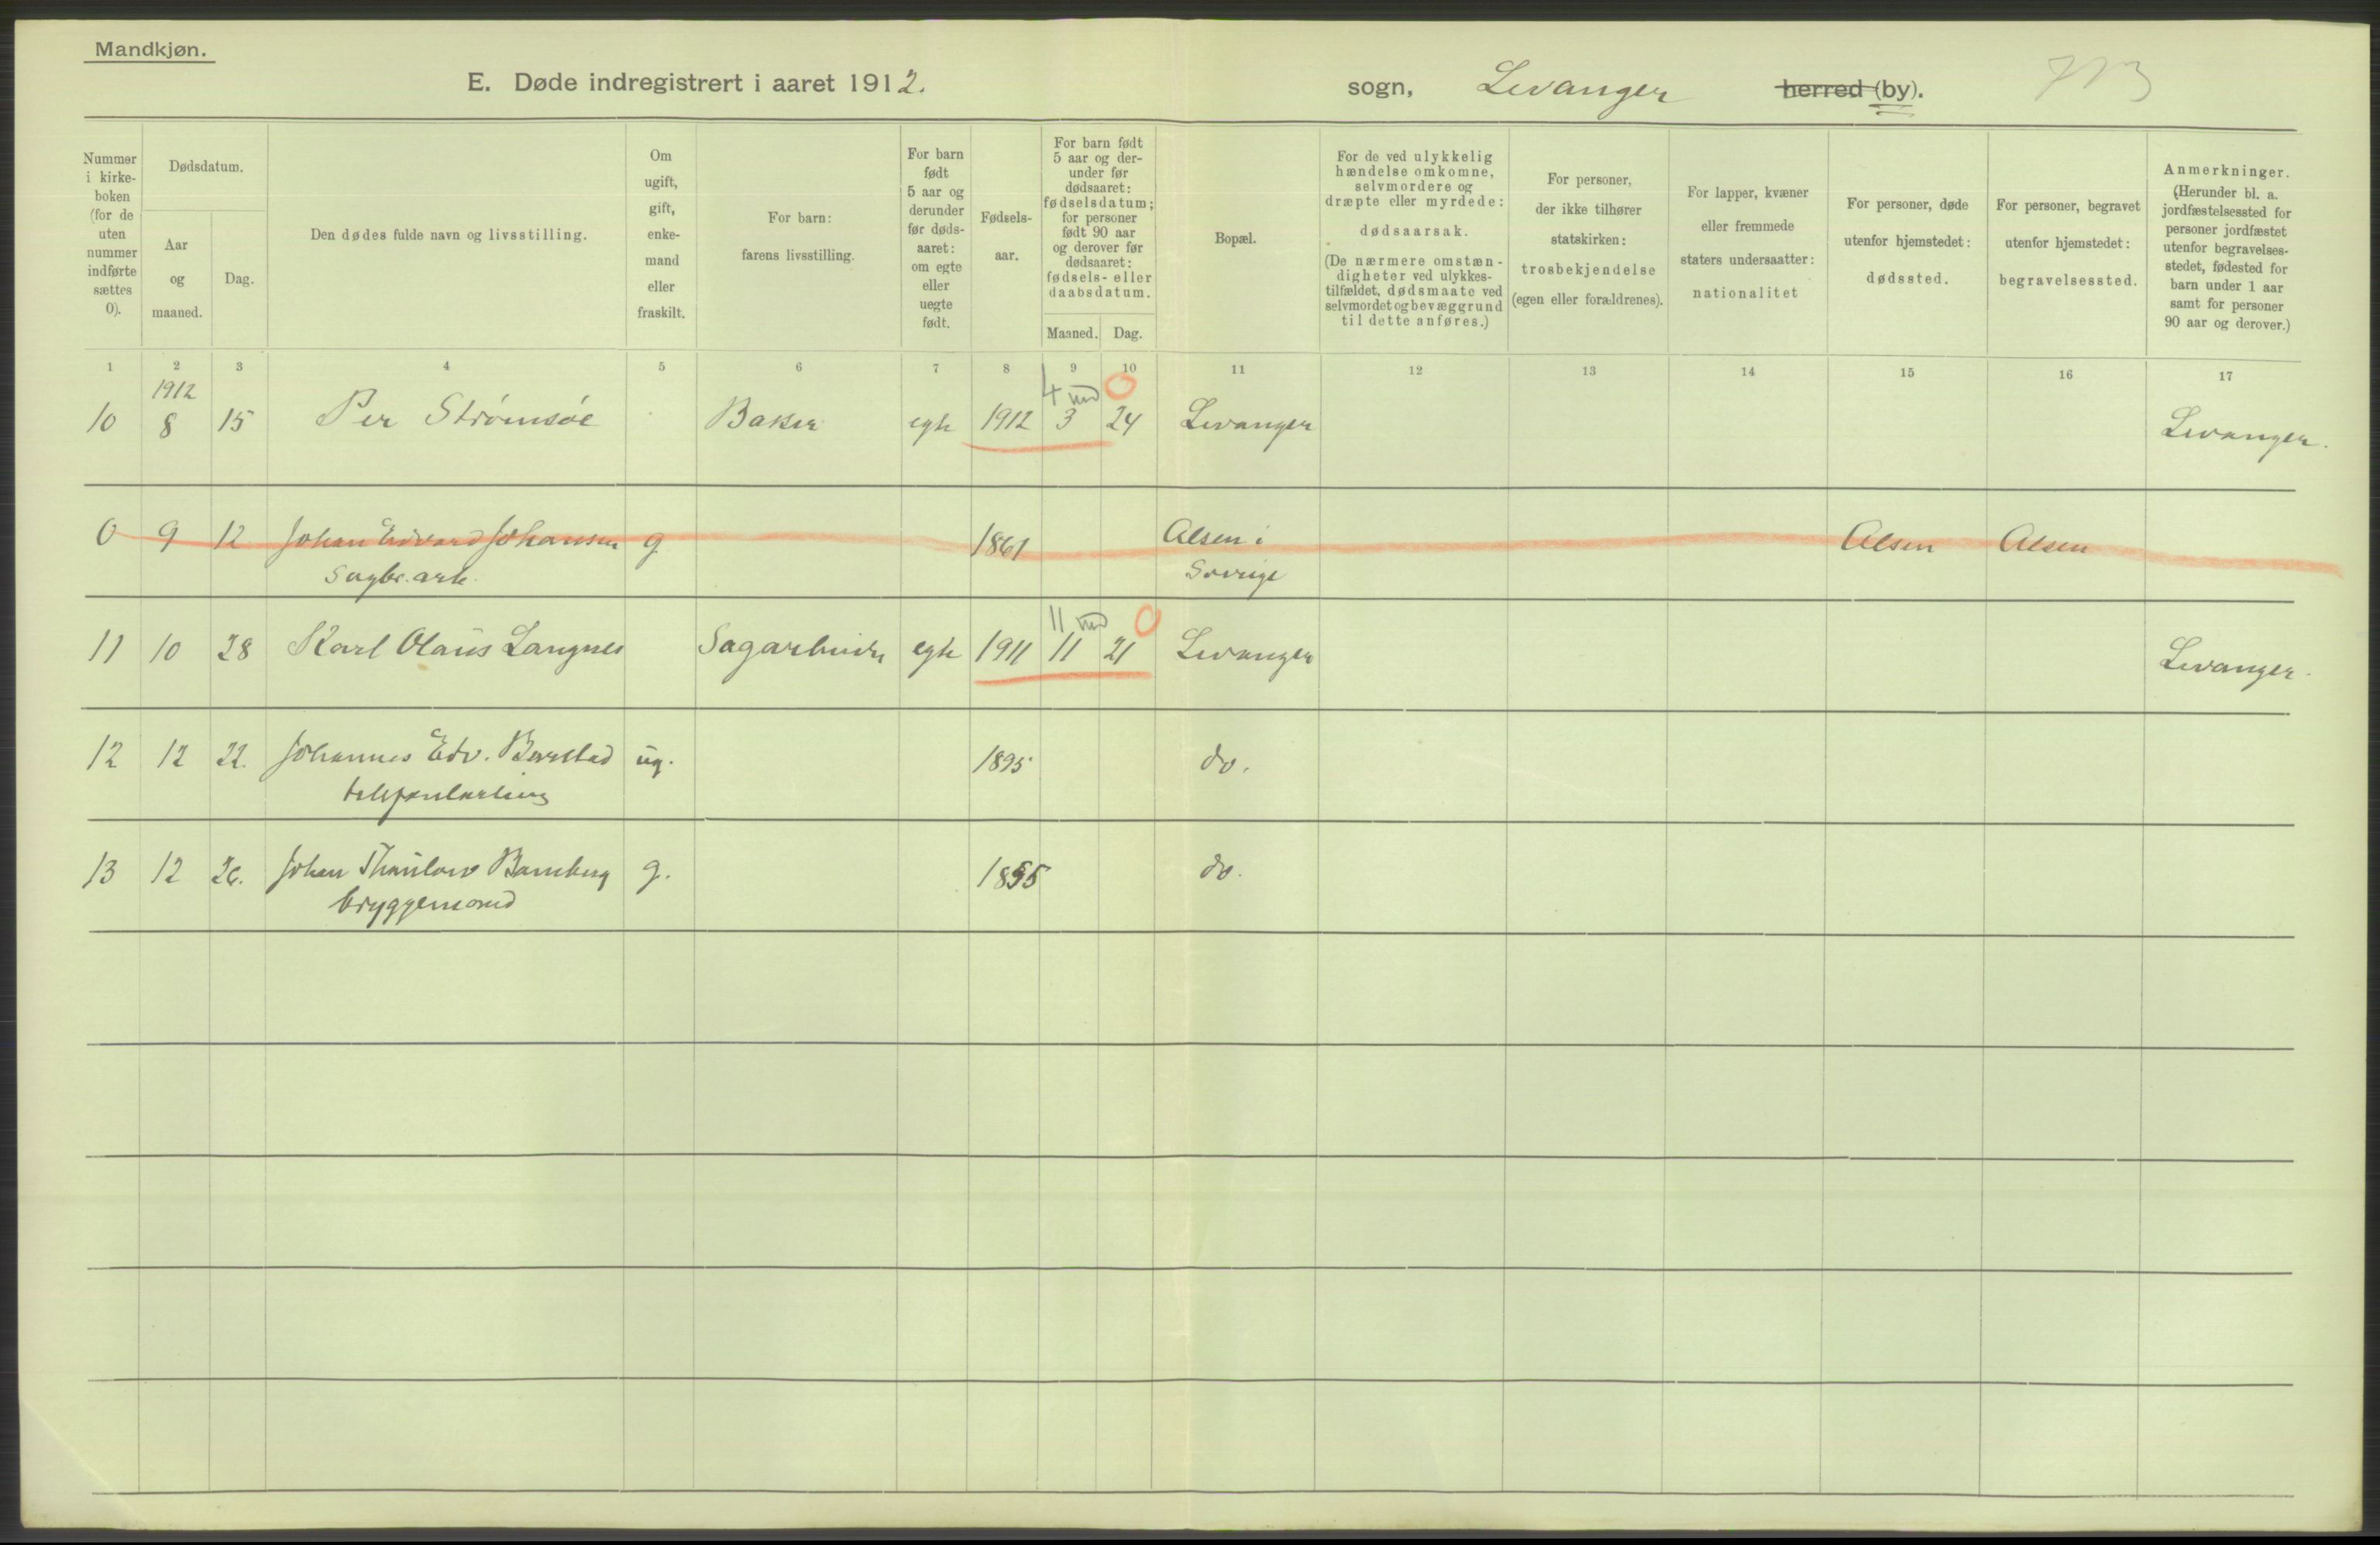 Mandkjøn.
E. Døde indregistrert i aaret 1912. sogn, Levanger herred (by).
Nummer i kirke-boken (for de uten nummer indførte sættes 0).
Dødsdatum.
Aar og maaned.
Dag.
Den dødes fulde navn og livsstilling.
Om ugift, gift, enke-mand eller fraskilt.
For barn: farens livsstilling.
For barn født 5 aar og derunder før døds-aaret: om egte eller uegte født.
Fødsels-aar.
For barn født 5 aar og der-under før dødsaaret: fødselsdatum; for personer født 90 aar og derover før dødsaaret: fødsels- eller daabsdatum.
Maaned. Dag.
Bopæl.
For de ved ulykkelig hændelse omkomne, selvmordere og dræpte eller myrdede: dødsaarsak. (De nærmere omstæn-digheter ved ulykkes-tilfældet, dødsmaate ved selvmordet og bevæggrund til dette anføres.)
For personer, der ikke tilhører statskirken: trosbekjendelse (egen eller forældrenes).
For lapper, kvæner eller fremmede staters undersaatter: nationalitet
For personer, døde utenfor hjemstedet: dødssted.
For personer, begravet utenfor hjemstedet: begravelsessted.
Anmerkninger. (Herunder bl. a. jordfæstelsessted for personer jordfæstet utenfor begravelses-stedet, fødested for barn under 1 aar samt for personer 90 aar og derover.)
1 2 3 4 5 6 7 8 9 10 11 12 13 14 15 16 17
1912
4 md 0
10 8 15 Per Strømsøe Baker egte 1912 3 24 Levanger Levanger.
0 9 12 Johan Edvard Johansen g 1861 Alsen i Alsen Alsen
Sagbr. arb. Sverige
11 md 0
11 10 28 Karl Olaus Langnes Sagarbeider egte 1911 11 21 Levanger Levanger.
12 12 22. Johannes Edv. ug. 1895 do.
13 12 26. Johan Thaulow Bamberg g. 1855 do.
bryggemand